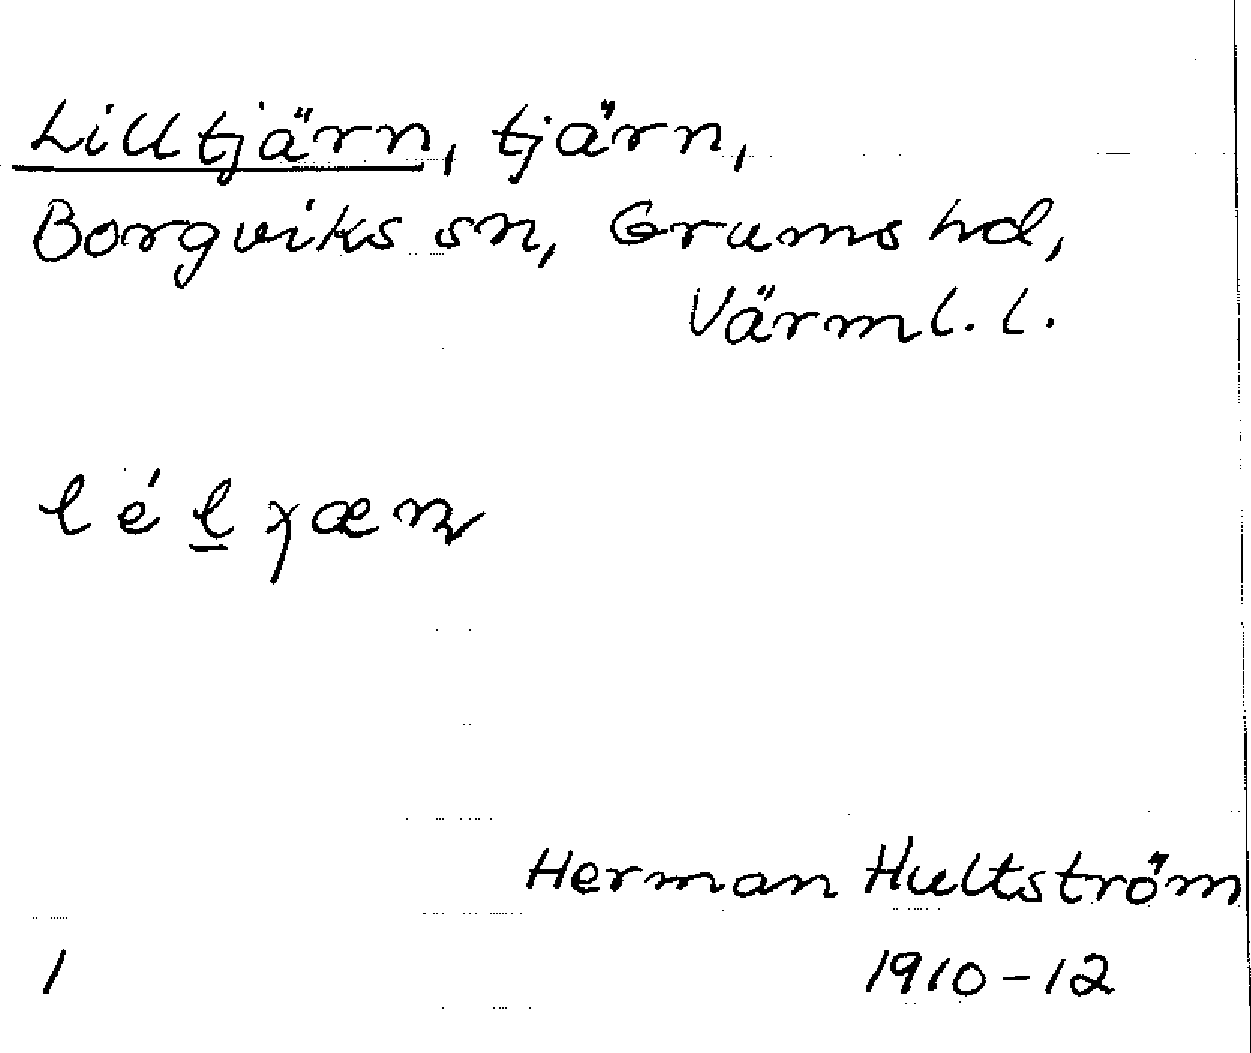 Lilltjärn, tjärn,
Borgviks sn, Grums hd,
Värml. l.
Herman Hultström
1 1910-12